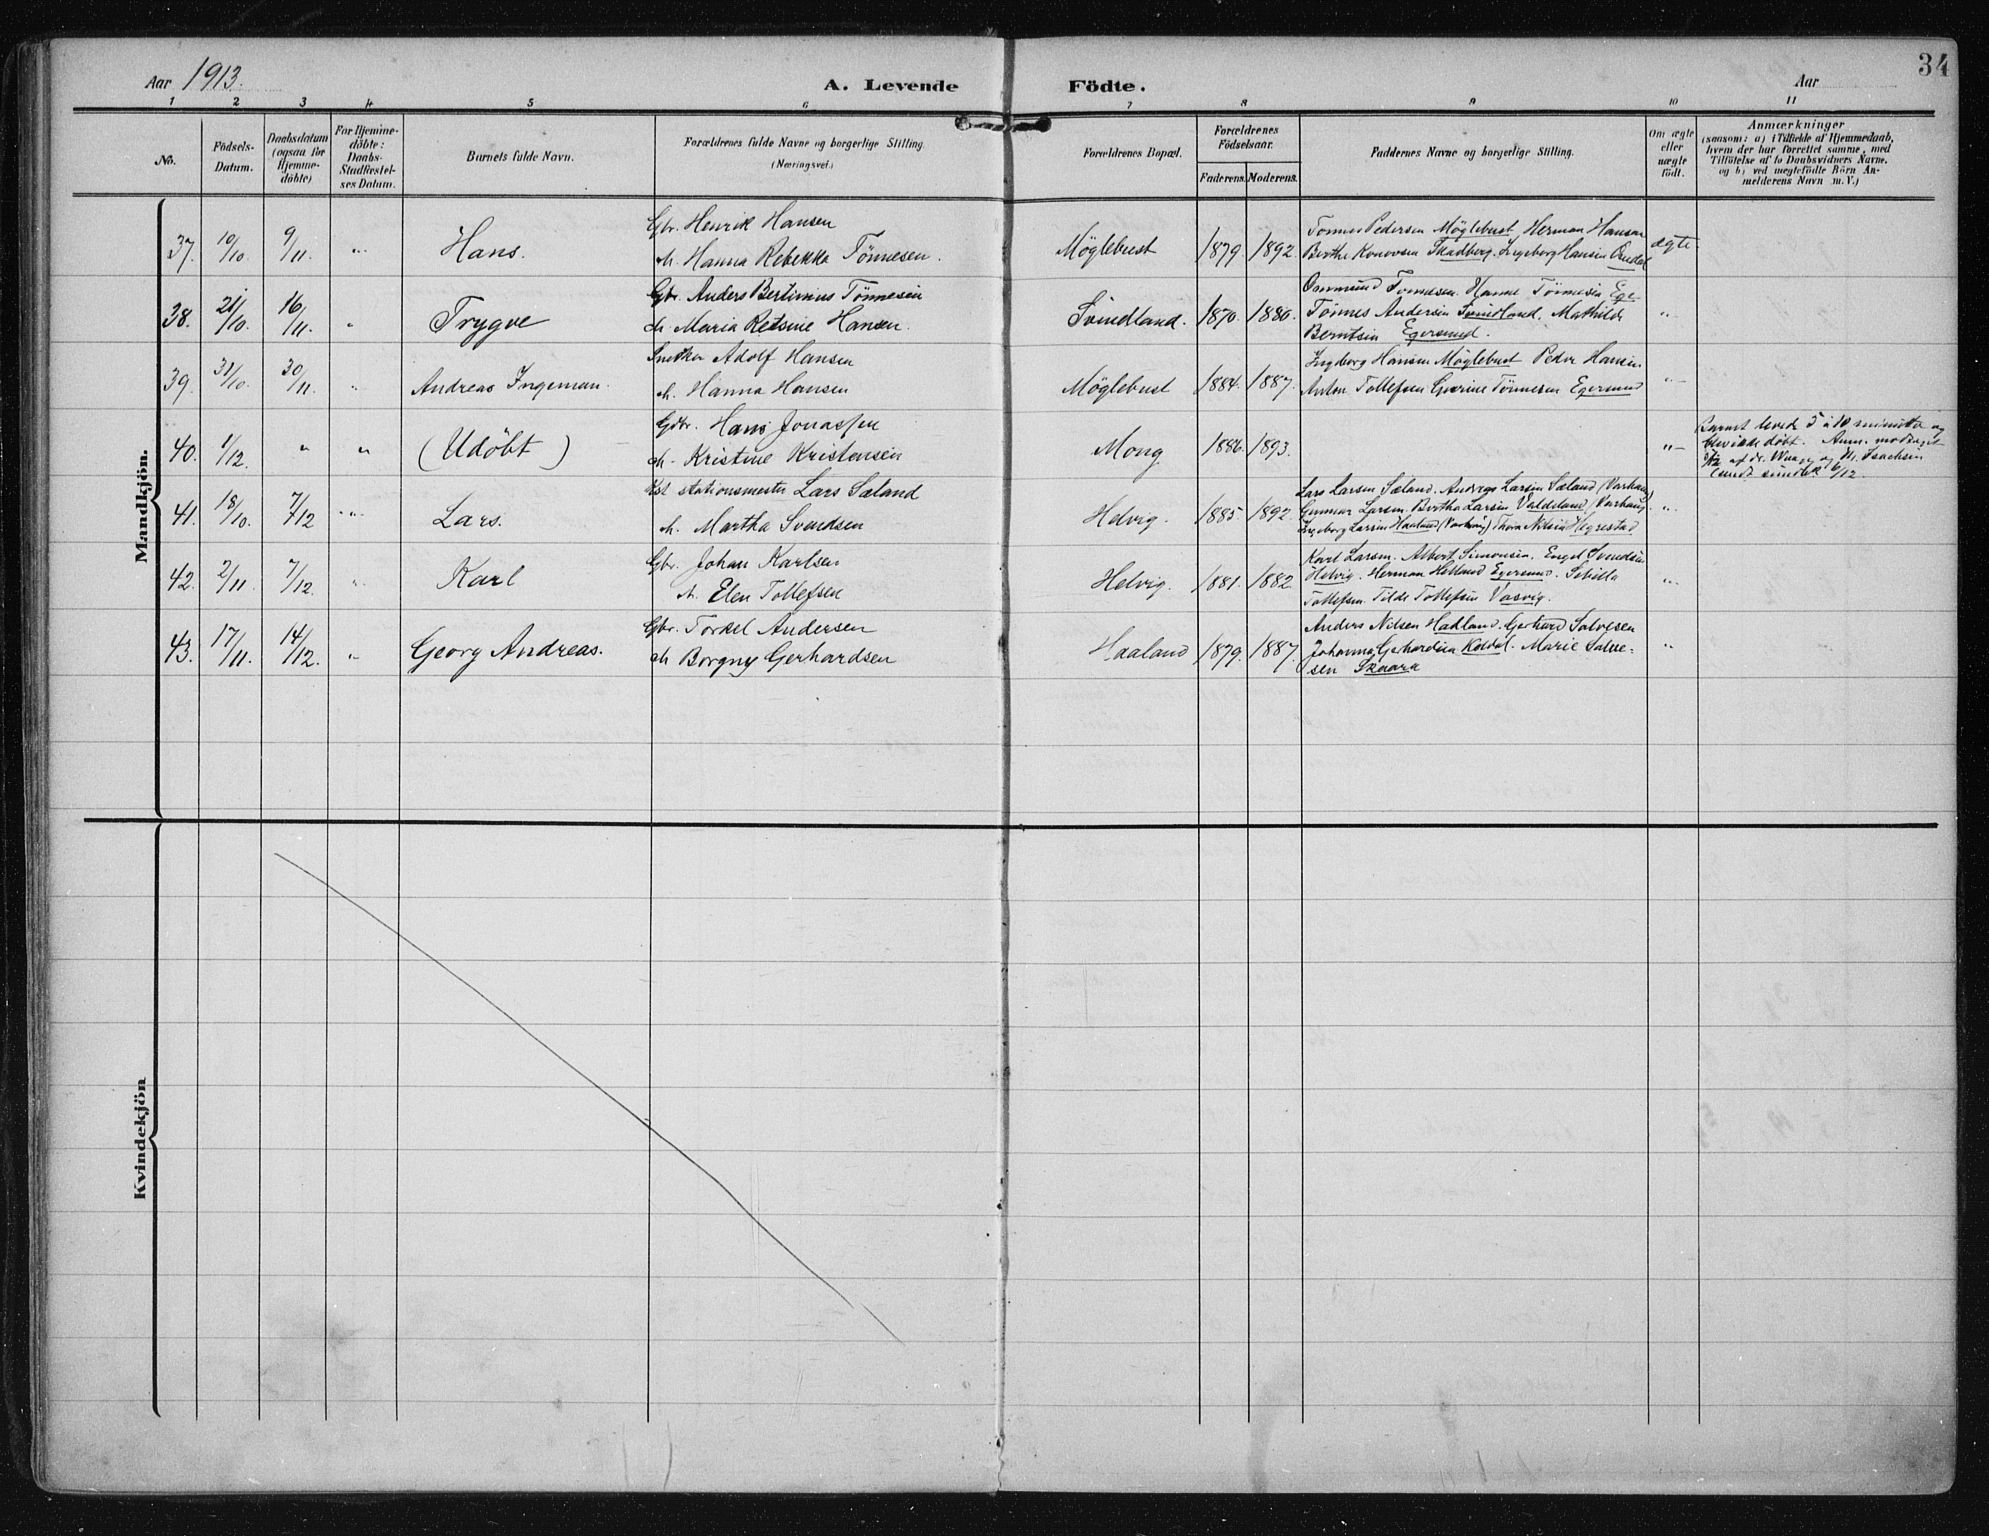 34
Aar 1913.
A. Levende Födte.
Aar
1 2 3 4 5 6 7 8 9 10 11
No.
Födsels-Datum.
Daabsdatum (ogsaa for Hjemme-döbte)
For Hjemme-döbte: Daabs-Stadfæstel-ses Datum.
Barnets fulde Navn.
Forældrenes fulde Navne og borgerlige Stilling.
(Næringsvei.)
Forældrenes Bopæl.
Forældrenes Födselsaar.
Faderens. Moderens.
Faddernes Navne og borgerlige Stilling.
Om ægte eller uægte födt.
Anmærkninger
(saasom: a) i Tilfælde af Hjemmedaab,
hvem der har forrettet samme, med
Tilföielse af to Daabsvidners Navne,
og b) ved uægtefödte Börn An-
melderens Navn m. V.)
Mandkjön.
37. 10/10. 9/11. " Hans.
Gbr. Henrik Hansen
h. Hanna Rebekka Tönnesen.
Möglebust 1879. 1892.
Tönnes Pedersen Möglebust, Herman Hansen
Berthe Konovsen Skadberg. Ingeborg Hansen
ægte
38. 21/10. 16/11. " Trygve
Gbr. Anders Bertinius Tönnesen
h. Maria Retsine Hansen.
Svindland. 1870. 1880.
Ommund Tönnesen. Hanne Tönnesen Ege
Tönnes Andersen Svindland. Mathilde
Berntsen Egersund.
"
39. 31/10. 30/11. " Andreas Ingeman.
Adolf Hansen
h. Hanna Hansen
Möglebust 1884. 1887.
Ingborg Hansen Möglebust Peder Hansen
Anton Tollefsen Tönnesen Egersund
"
40. 1/12. " " (Udöbt)
Gbr. Hans Jonassen
h. Kristine Kristensen
Mong 1886. 1893.
"
Barnet levede 5 à 10 minutter og
blev ikke döbt. Anm. modtaget
af dr. og
6/12.
41. 18/10. 7/12 " Lars.
stationsmester Lars Sæland
h. Martha Svendsen
Helvig. 1885. 1892.
Lars Larsen Sæland. Andreas Larsen Sæland (Varhaug)
Gunnar Larsen. Berthe Larsen Valdeland (Varhaug)
Ingeborg Larsen Haaland (Varhaug) Thora Nilsen Hegrestad
"
42. 2/11. 7/12. " Karl
Gbr. Johan Karlsen
h. Elen Tollefsen
Helvig. 1881. 1882
Karl Larsen. Albert Simonsen. Engel Svendsen
Helvig. Herman Helland Egersund. Sibilla
Tollefsen. Tilde Tollefsen Vasvig.
"
43. 17/11. 14/12. " Georg Andreas.
Gbr. Torkel Andersen
h Borgny Gerhardsen
Haaland 1879. 1887.
Anders Nilsen Hadland. Gerhard Salvesen
Johanna Gerhardsen Koldal. Marie Salve-
sen Skaara
"
Kvindekjön